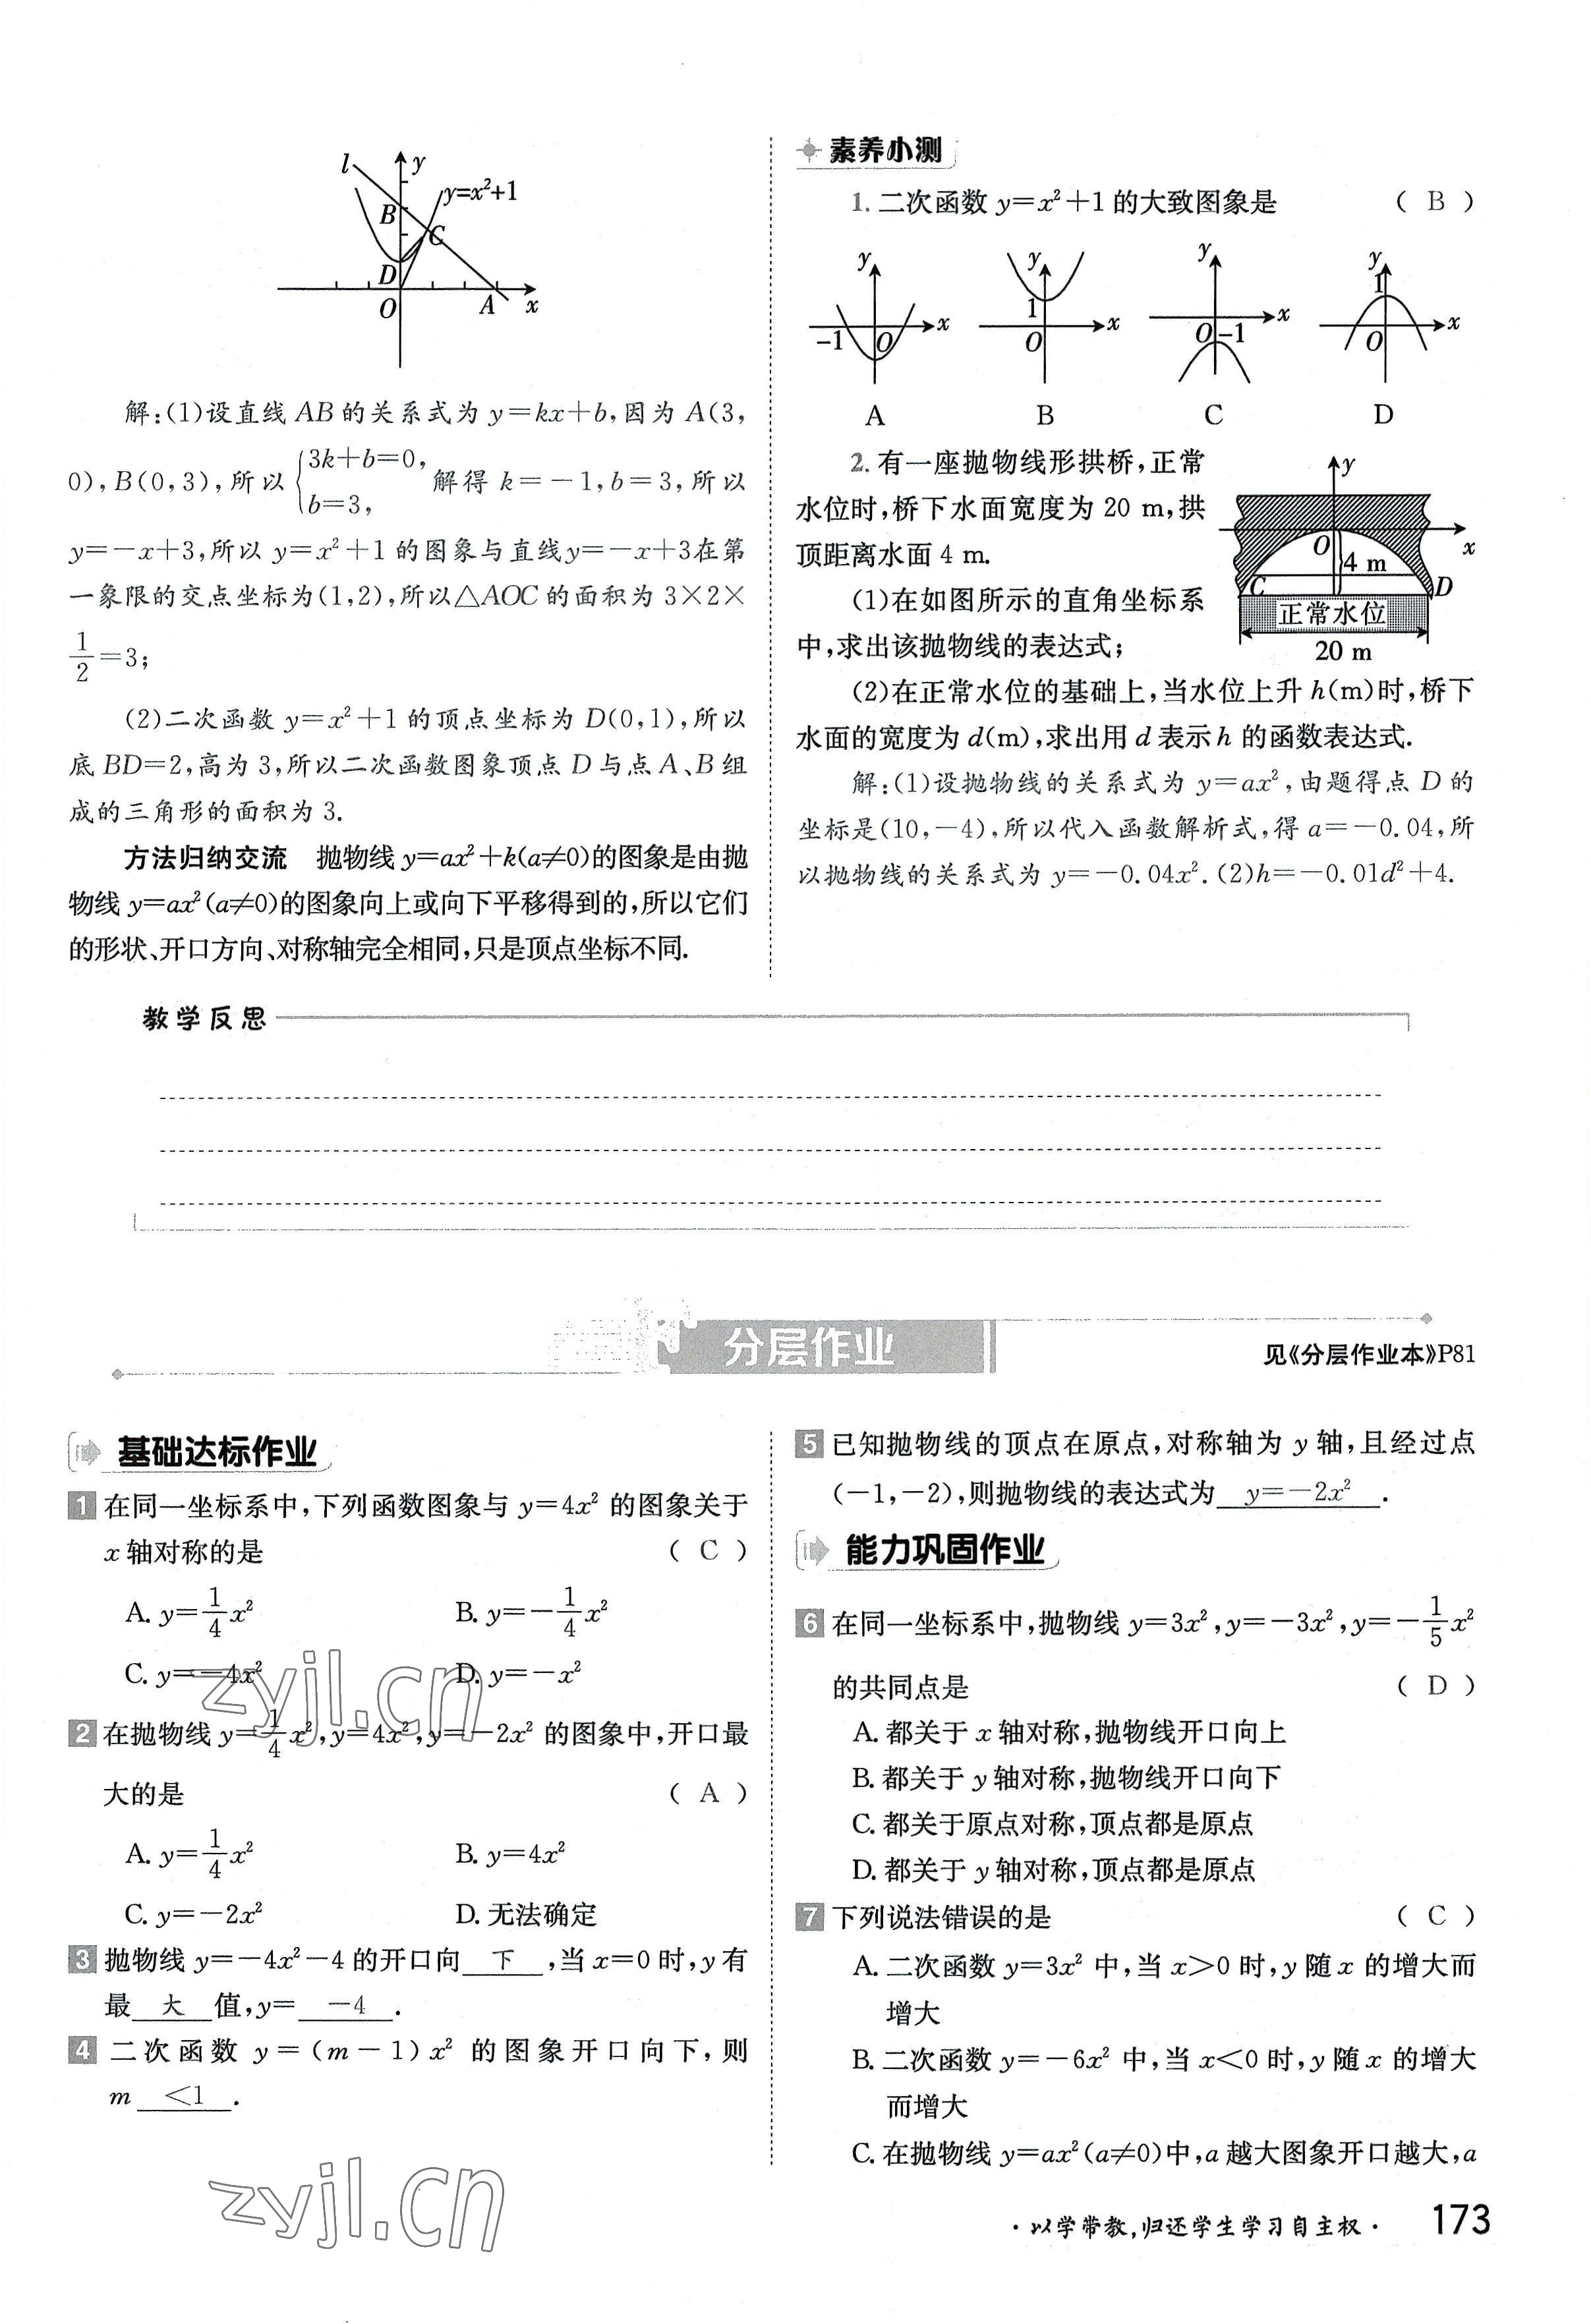 l y y=x²+1
B C D
O A x
解:(1)设直线 AB 的关系式为 y=kx+b,因为 A(3,
0),B(0,3),所以 {3k+b=0, b=3, 解得 k=-1,b=3,所以
y=-x+3,所以 y=x²+1 的图象与直线y=-x+3在第
一象限的交点坐标为(1,2),所以△AOC 的面积为 3×2×
1/2=3;
(2)二次函数 y=x²+1 的顶点坐标为 D(0,1),所以
底 BD=2,高为 3,所以二次函数图象顶点 D 与点 A、B 组
成的三角形的面积为 3.
方法归纳交流 抛物线 y=ax²+k(a≠0)的图象是由抛
物线 y=ax²(a≠0)的图象向上或向下平移得到的,所以它们
的形状、开口方向、对称轴完全相同,只是顶点坐标不同.
素养小测
1. 二次函数 y=x²+1 的大致图象是 ( B )
y x -1 O
y x 1 O
y x O -1
y x 1 O
A B C D
2. 有一座抛物线形拱桥,正常
水位时,桥下水面宽度为 20 m,拱
顶距离水面 4 m.
(1)在如图所示的直角坐标系
中,求出该抛物线的表达式;
y
O x
4 m
C D
正常水位
20 m
(2)在正常水位的基础上,当水位上升 h(m)时,桥下
水面的宽度为 d(m),求出用 d 表示 h 的函数表达式.
解:(1)设抛物线的关系式为 y=ax²,由题得点 D 的
坐标是(10,-4),所以代入函数解析式,得 a=-0.04,所
以抛物线的关系式为 y=-0.04x².(2)h=-0.01d²+4.
教学反思
分层作业
见《分层作业本》P81
基础达标作业
1 在同一坐标系中,下列函数图象与 y=4x² 的图象关于
x 轴对称的是 ( C )
A. y=1/4x² B. y=-1/4x²
C. y=-4x² D. y=-x²
2 在抛物线 y=1/4x²,y=4x²,y=-2x² 的图象中,开口最
大的是 ( A )
A. y=1/4x² B. y=4x²
C. y=-2x² D. 无法确定
3 抛物线 y=-4x²-4 的开口向 下 ,当 x=0 时,y 有
最 大 值,y= -4 .
4 二次函数 y=(m-1)x² 的图象开口向下,则
m <1 .
5 已知抛物线的顶点在原点,对称轴为 y 轴,且经过点
(-1,-2),则抛物线的表达式为 y=-2x² .
能力巩固作业
6 在同一坐标系中,抛物线 y=3x²,y=-3x²,y=-1/5x²
的共同点是 ( D )
A. 都关于 x 轴对称,抛物线开口向上
B. 都关于 y 轴对称,抛物线开口向下
C. 都关于原点对称,顶点都是原点
D. 都关于 y 轴对称,顶点都是原点
7 下列说法错误的是 ( C )
A. 二次函数 y=3x² 中,当 x>0 时,y 随 x 的增大而
增大
B. 二次函数 y=-6x² 中,当 x<0 时,y 随 x 的增大
而增大
C. 在抛物线 y=ax²(a≠0)中,a 越大图象开口越大,a
zyjl.cn
zyjl.cn
·以学带教,归还学生学习自主权· 173